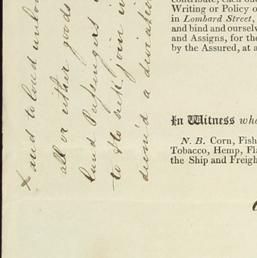 contribute, each one
Writing or Policy o
in Lombard Street,
and bind and ourselve
and Assigns, for the
by the Assured, at a
In Witness whe
N. B. Corn, Fish
Tobacco, Hemp, Fla
the Ship and Freigh
& and to load unlo
all or either goods
Land Passengers
to &
deem'd a deviation